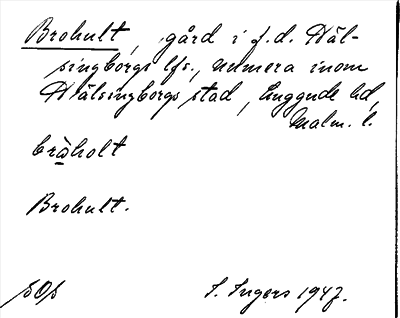 Brohult, gård i f.d. Häl-
singborgs lfs., numera inom
Hälsingborgs stad, Luggude hd,
Malm. l.
bràholt
Brohult.
SOS
I. Ingers 1947.